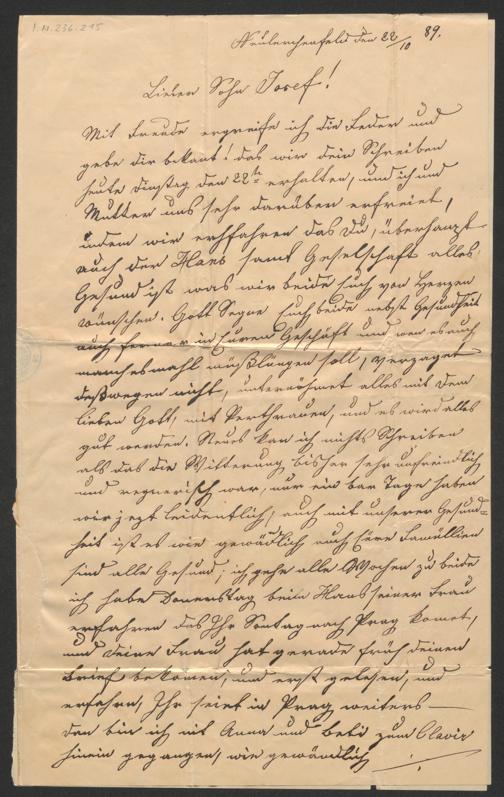 I.N. 236.215
Neulerchenfeld den 22/10 89.
Lieber Sohn Josef!
Mit Freude ergreife ich die Feder und
gebe dir bekant! das wir dein Schreiben
heute Dinstag den 22tn erhalten, und ich und
Mutter uns sehr darüben erfreiet,
indem wir erhfahren das du, überhaupt
auch der Hans samt Geselschaft alles
Gesund ist was wir beide Euch von Herzen
wünschen. Gott Segne Euch beide nebst Gesundheit
auch ferner in Euren Geschäft und wen es auch
manchesmahl müßlüngen soll, verzaget
deßwegen nicht, unternöhmet alles mit dem
lieben Gott, mit Verthrauen, und es wird alles
gut werden. Neues kan ich nichts Schreiben
als das die Witterung bisher sehr unfreindlich
und regnerisch war, nur ein bar Tage haben
wir jezt leidentlich, auch mit unserer Gesund=
heit ist es wie gewödlich auch Eere Famüllien
sind alle Gesund, ich gehe alle Wochen zu beide
ich habe Donerstag beim Hans seiner Frau
erfahren das Ihr Sontag nach Prag komet,
und deine Frau hat gerade früh deinen
Brief bekomen, und erst gelesen, und
erfahrn, Ihr seiet in Prag weiters —
dan bin ich mit Anna und Beti zum Clavir
hinein gegangen, wie gewöndlich